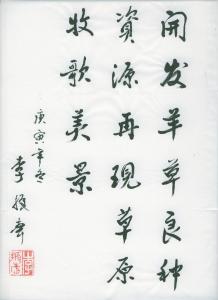 开发羊草良种
资源再现草原
牧歌美景
庚寅年冬
李振声